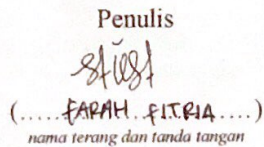 Penulis
(.....FARAH FITRIA.....)
nama terang dan tanda tangan